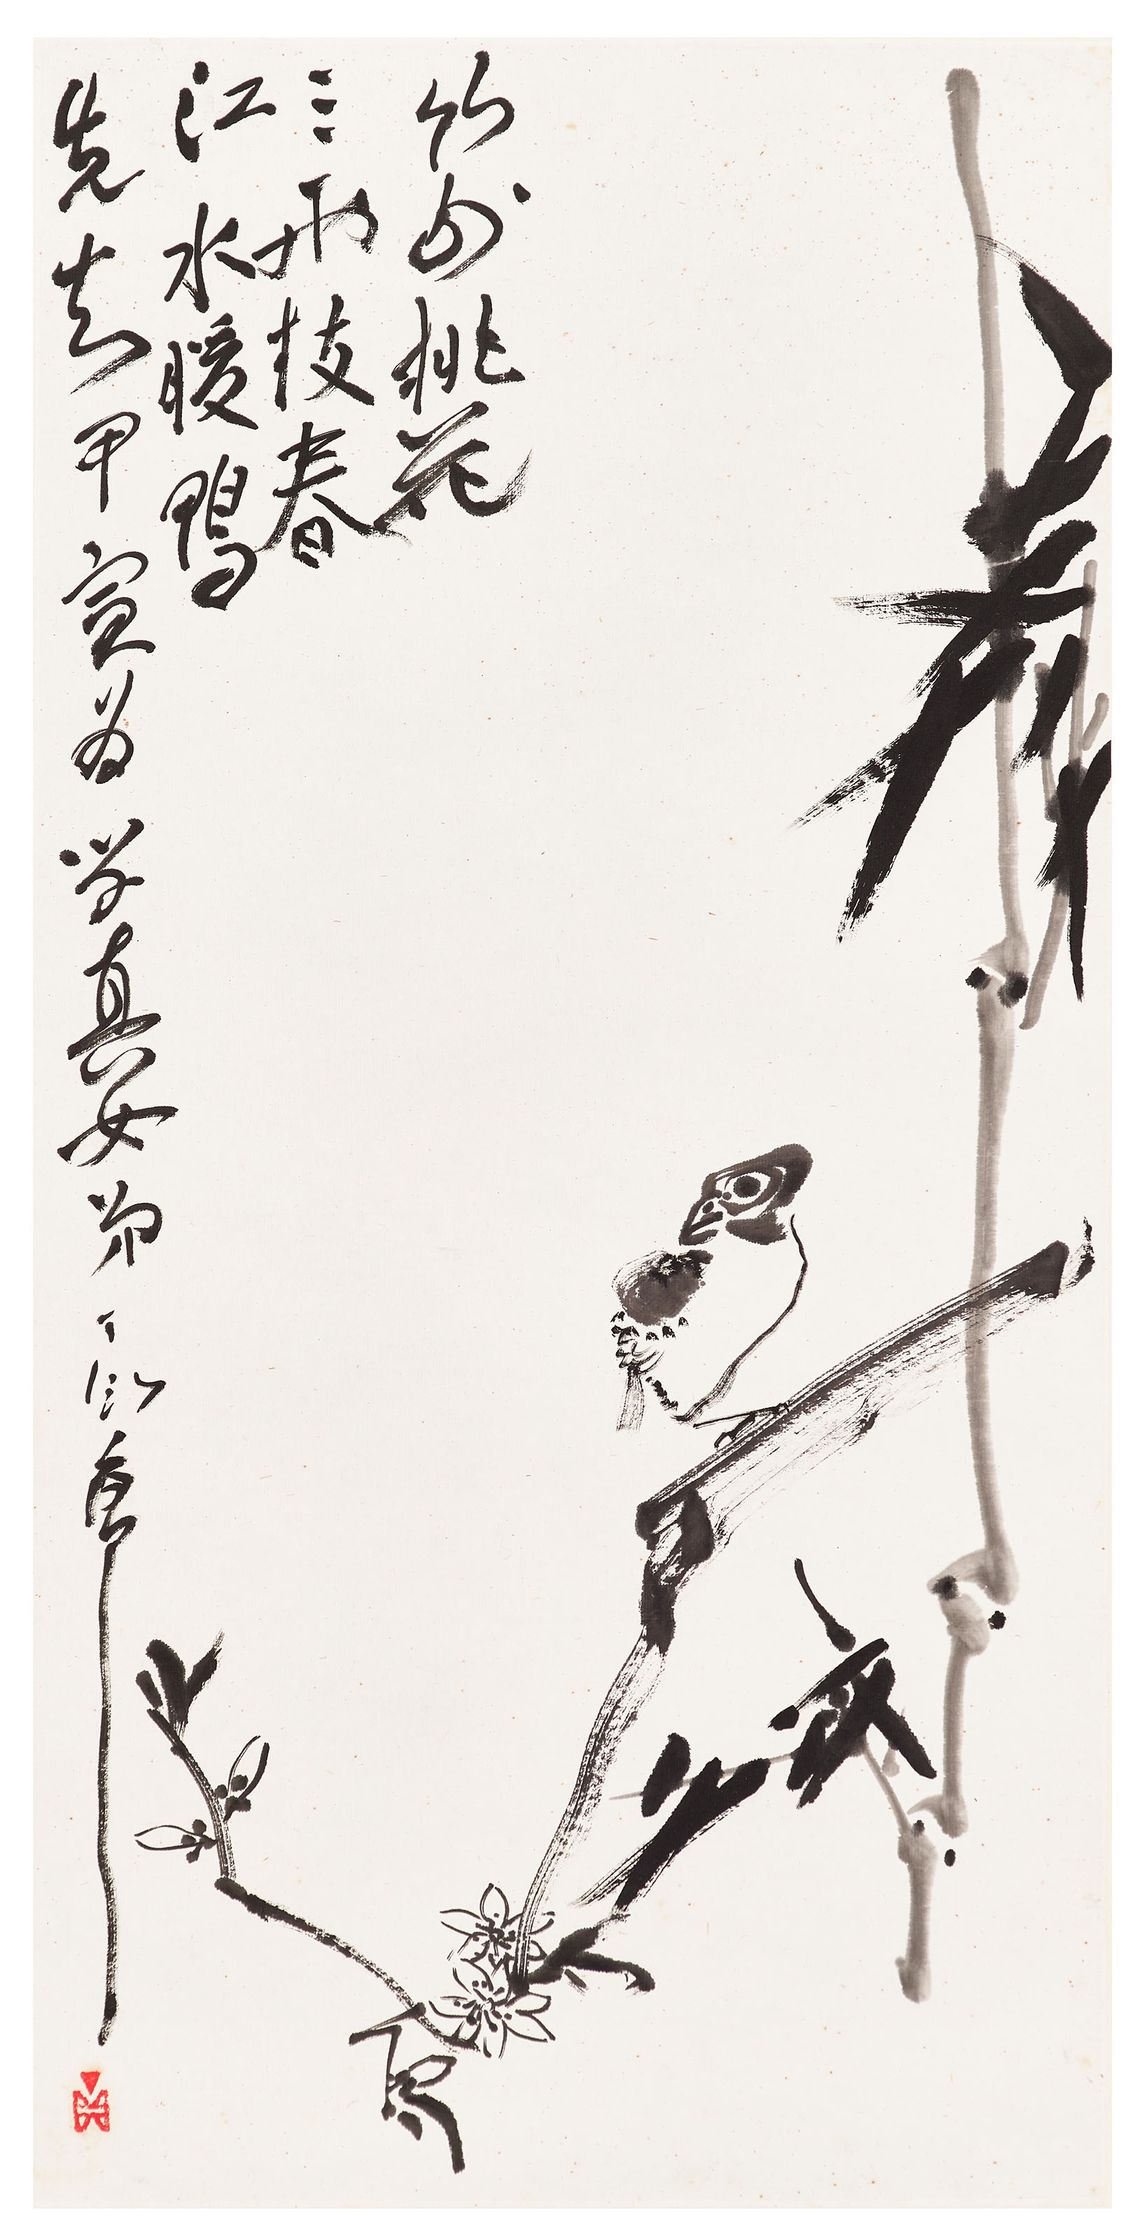 竹外桃花
三兩枝春
江水暖鴨
先知甲寅为学真女弟丁衍庸